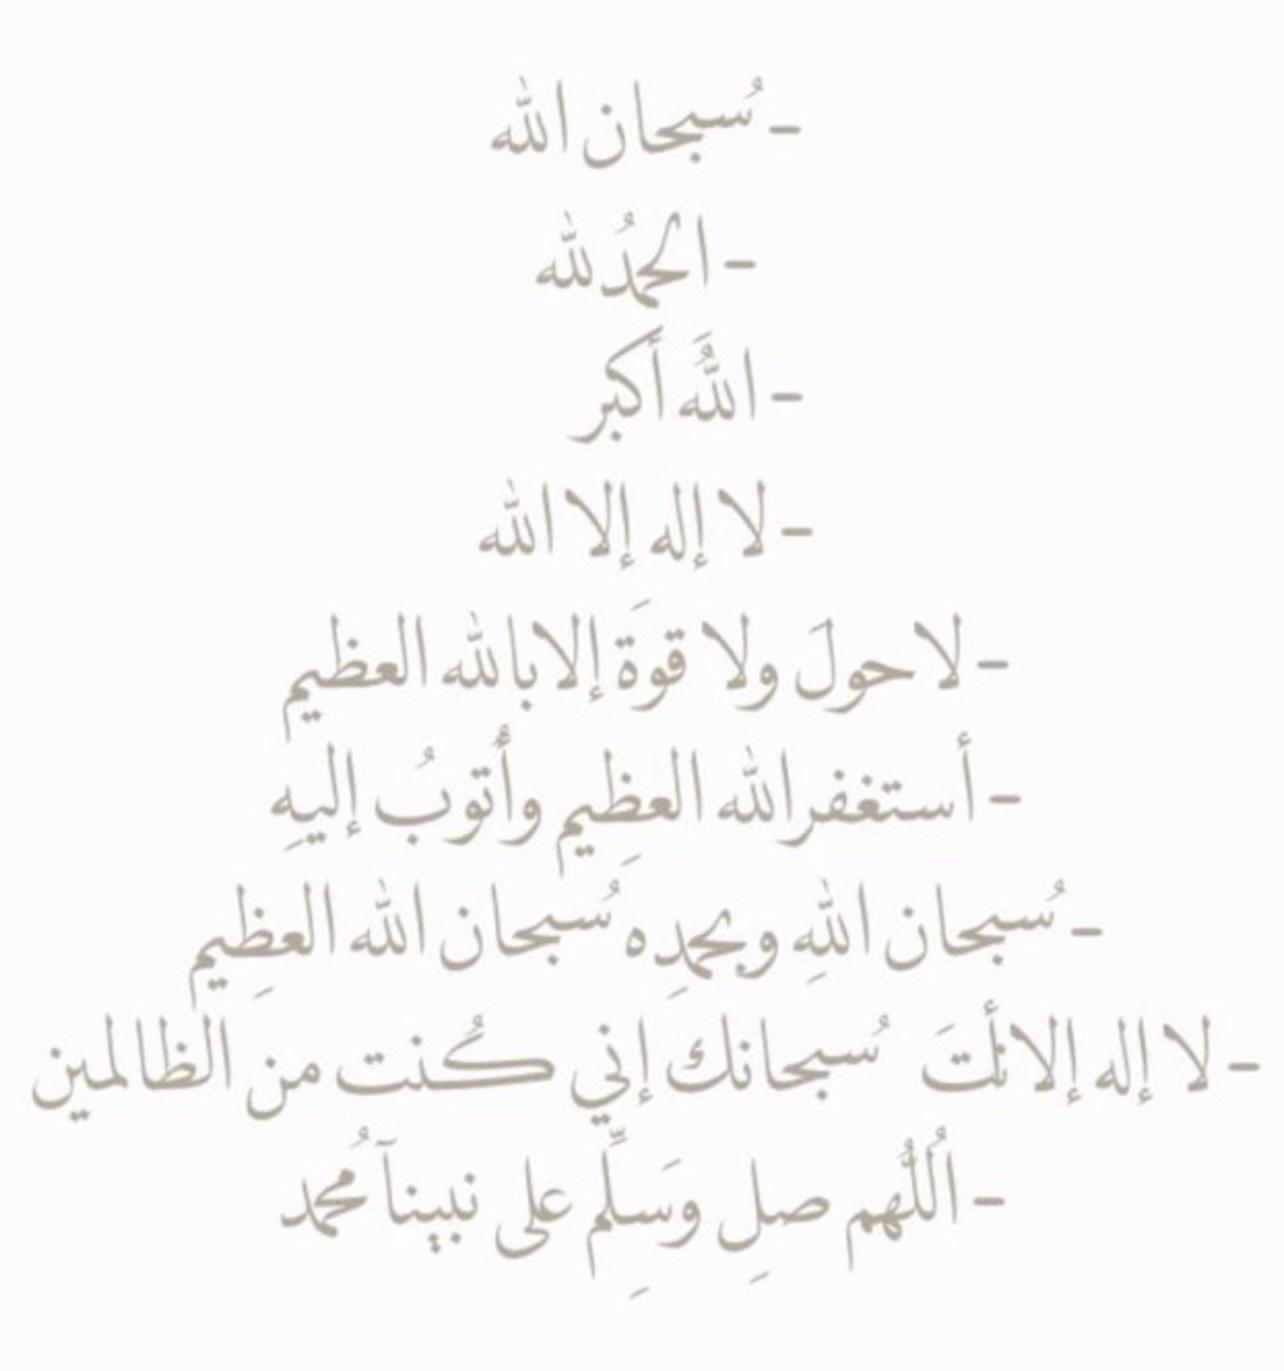 - سُبحان الله
- الحمدُلله
- اللَّهُ أَكبر
- لا إله إلا الله
- لاحولَ ولا قوةَ إلابالله العظيم
- أستغفرالله العظِيم وأَتوبُ إليهِ
- سُبحان اللهِ وبحمدِه سُبحان الله العظِيم
- لا إله إلاأنتَ سُبحانك إني كُنت من الظالمين
- اُللَّهُم صلِ وَسَلِّم على نبيناَ مُحمد